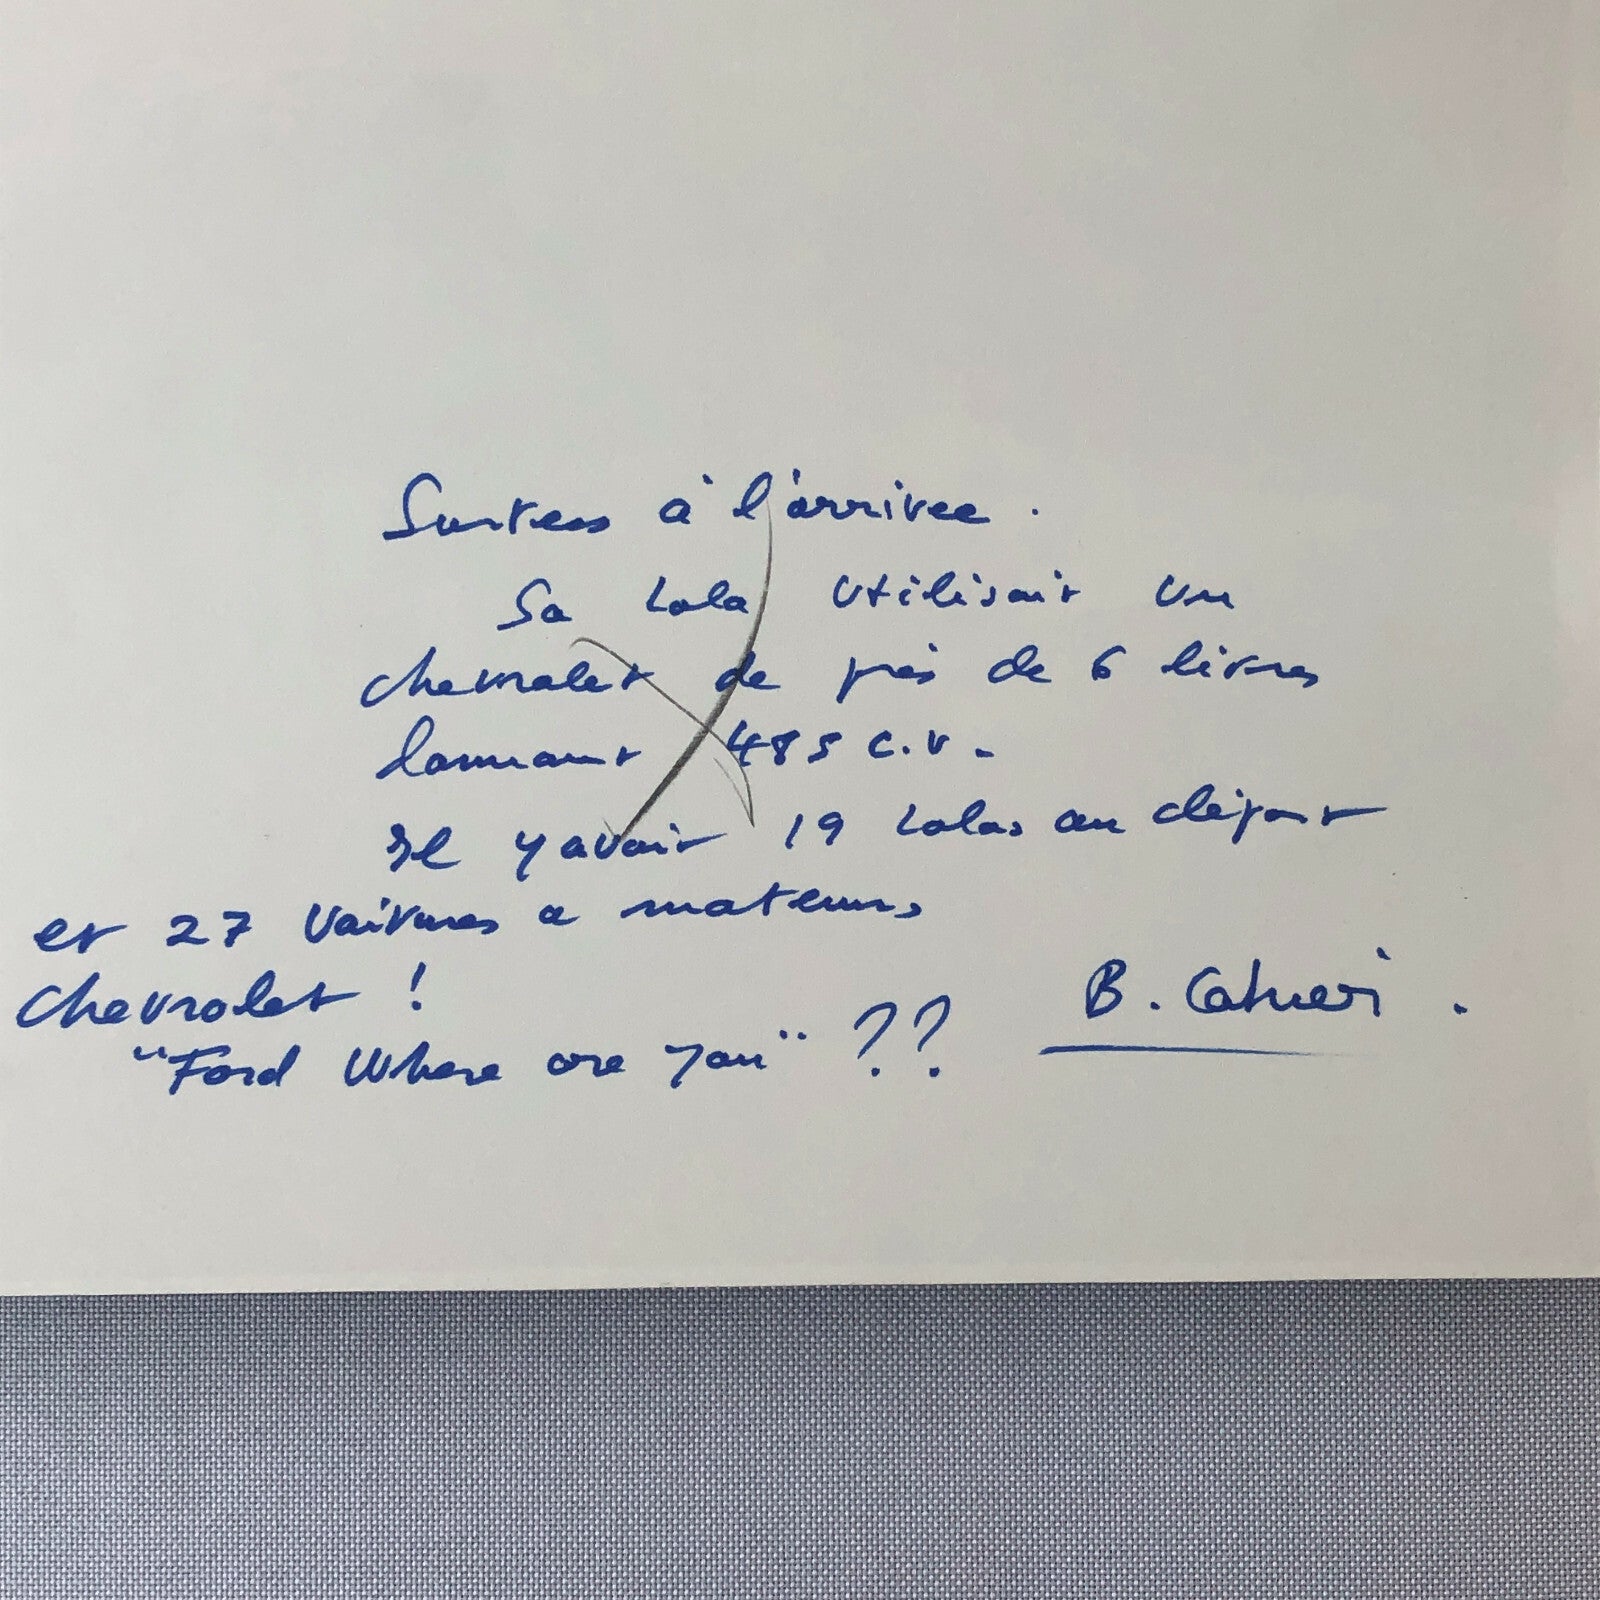 Surtees à l'arrivee.
Sa Lola utilisait un
chevrolet de près de 6 litres
donnant 485 c.v.
Il y avait 19 Lolas au départ
et 27 Voitures a moteurs
Chevrolet !
"Ford Where are you" ??
B. Cahier.